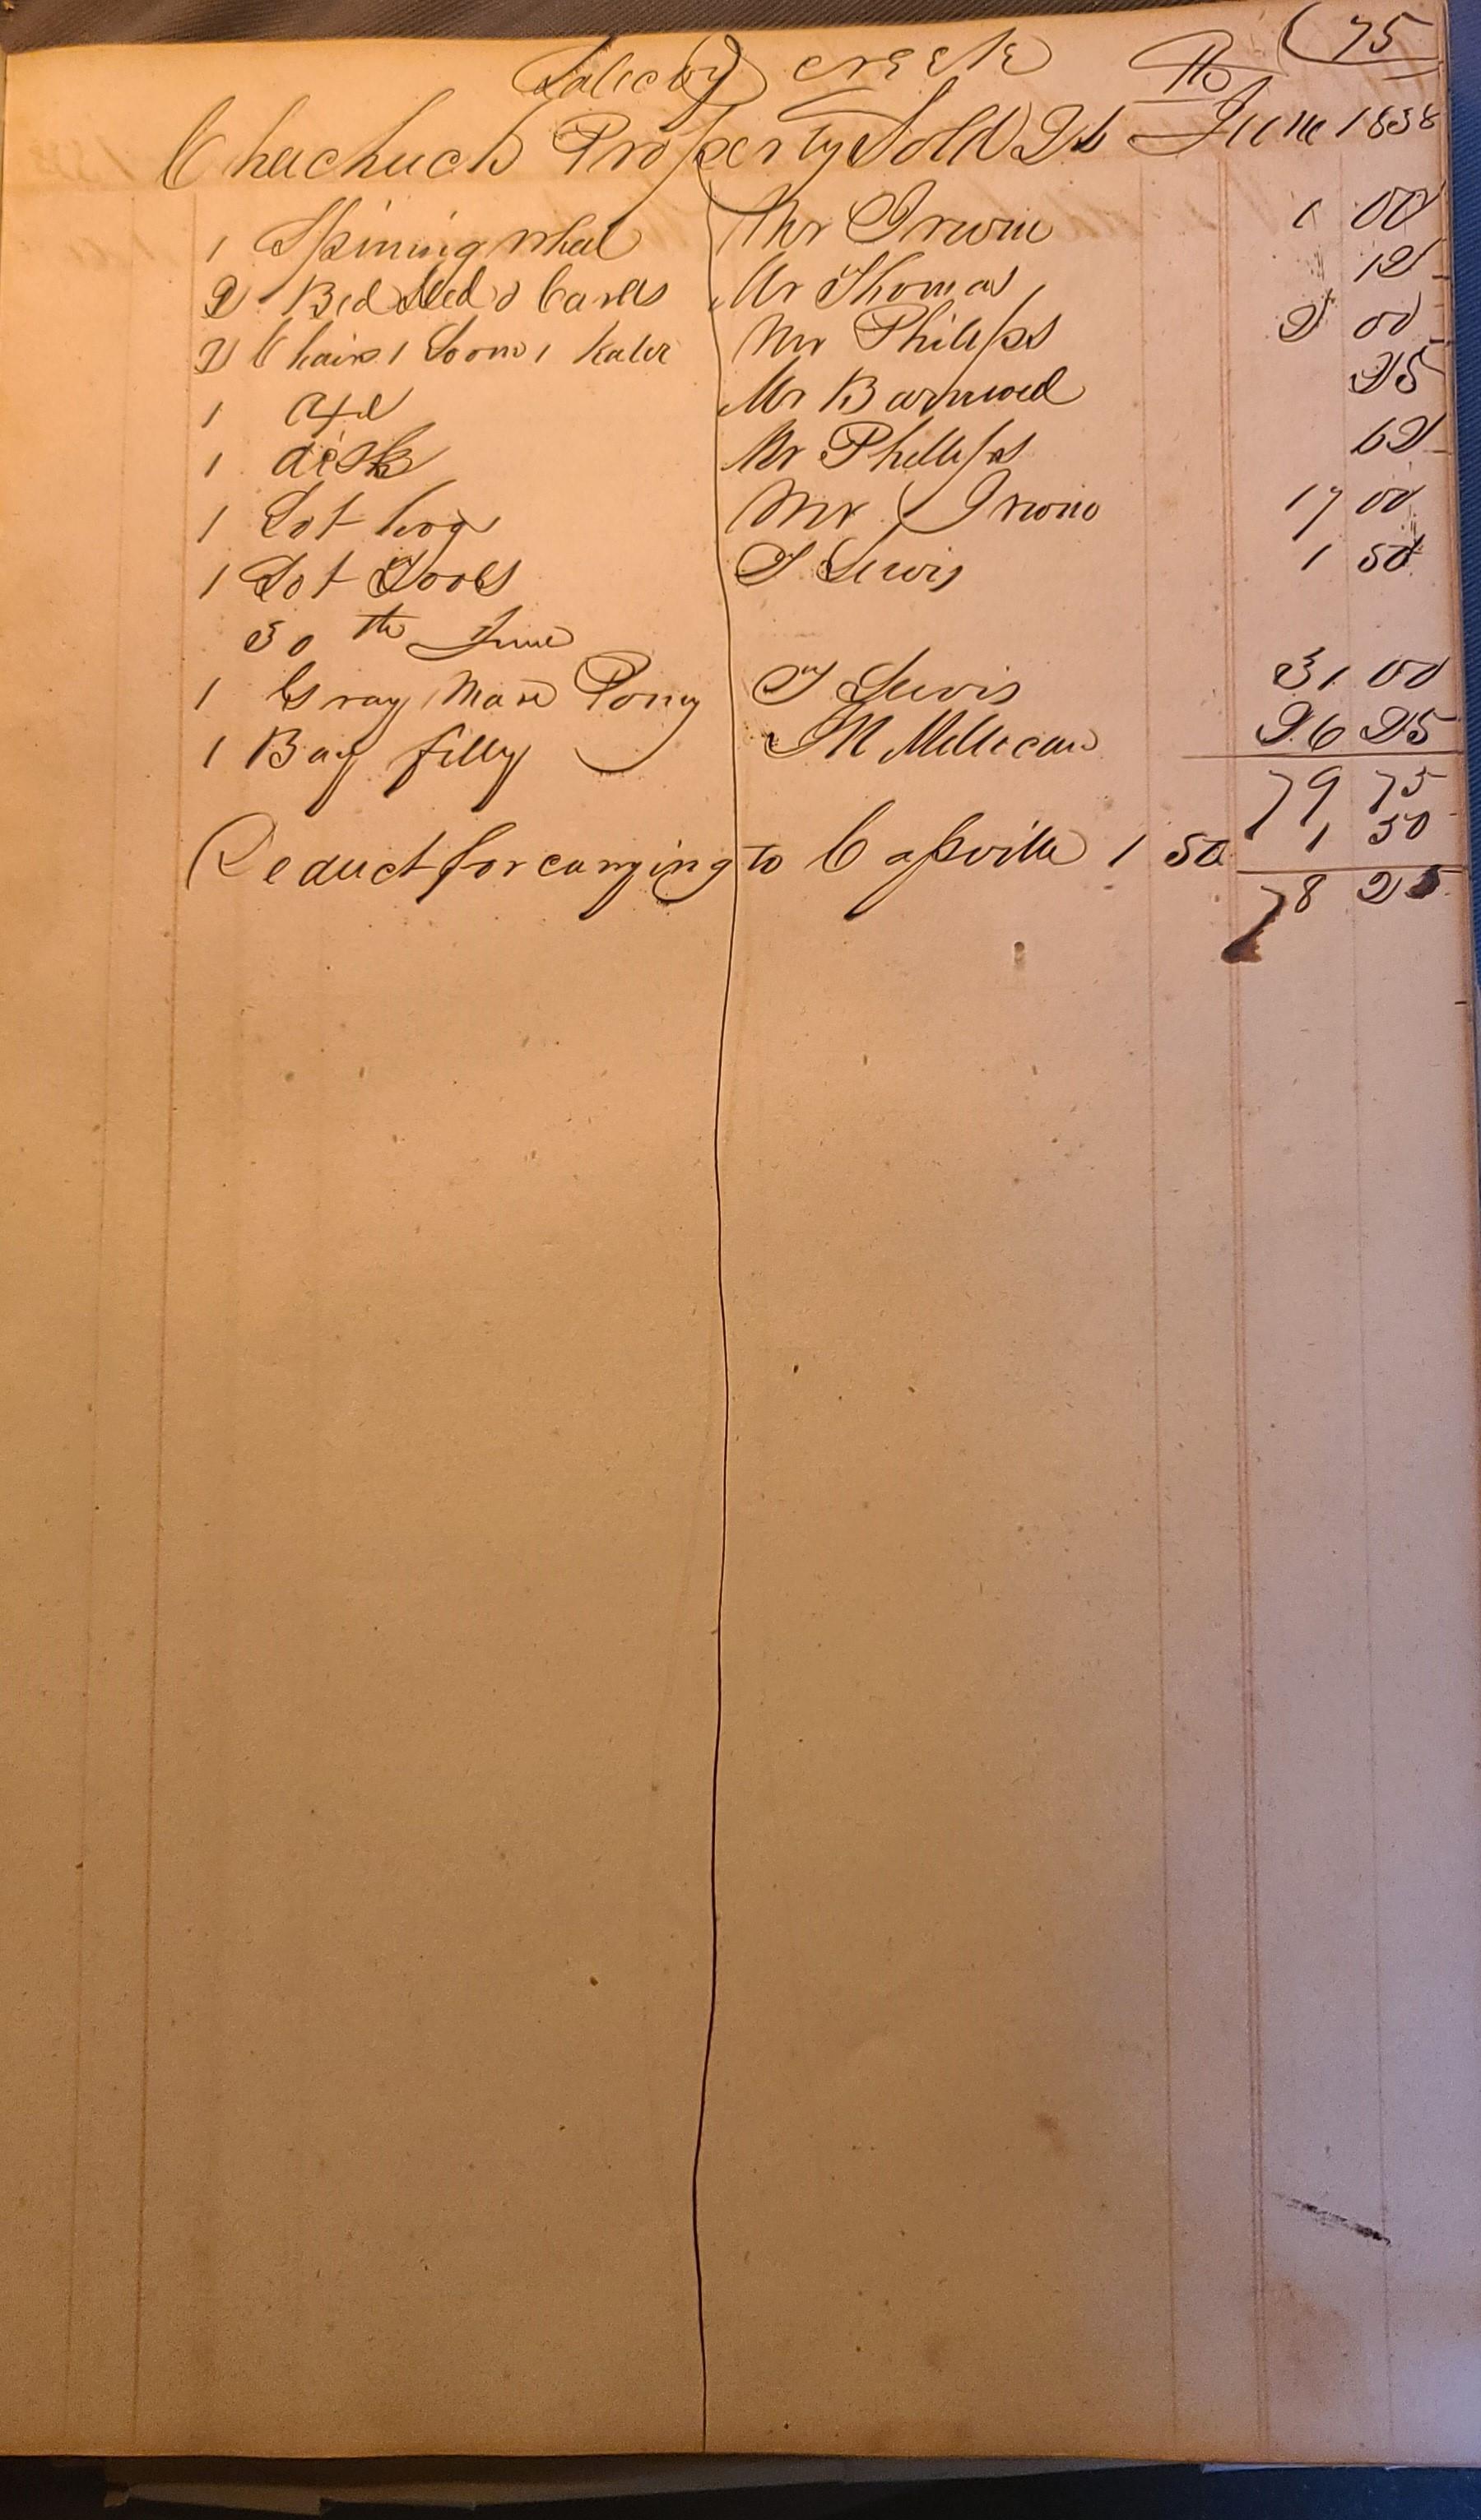 (75
Salicoy creek
Chuchuch Property Sold 25 th June 1838
1 Spining wheel Mr Irwin 1 00
2 Bed sted & Cards Mr Thomas 12
2 Chairs 1 Loom 1 Mr Philips 2 00
1 axe Mr Barnwell 25
1 disk Mr Phillips 62
1 Lot hogs Mr Irwin 17 00
1 Lot Tools T Lewis 1 50
30 th June
1 Gray Mare Pony T Lewis 31 00
1 Bay filly M Millican 26 25
79 75
Deduct for carrying to Cassville 1 50 1 50
78 25